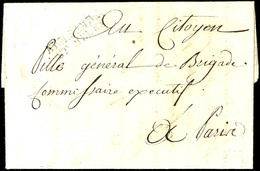 Au Citoyen
Pille général de Brigade
Commissaire executif
A Paris